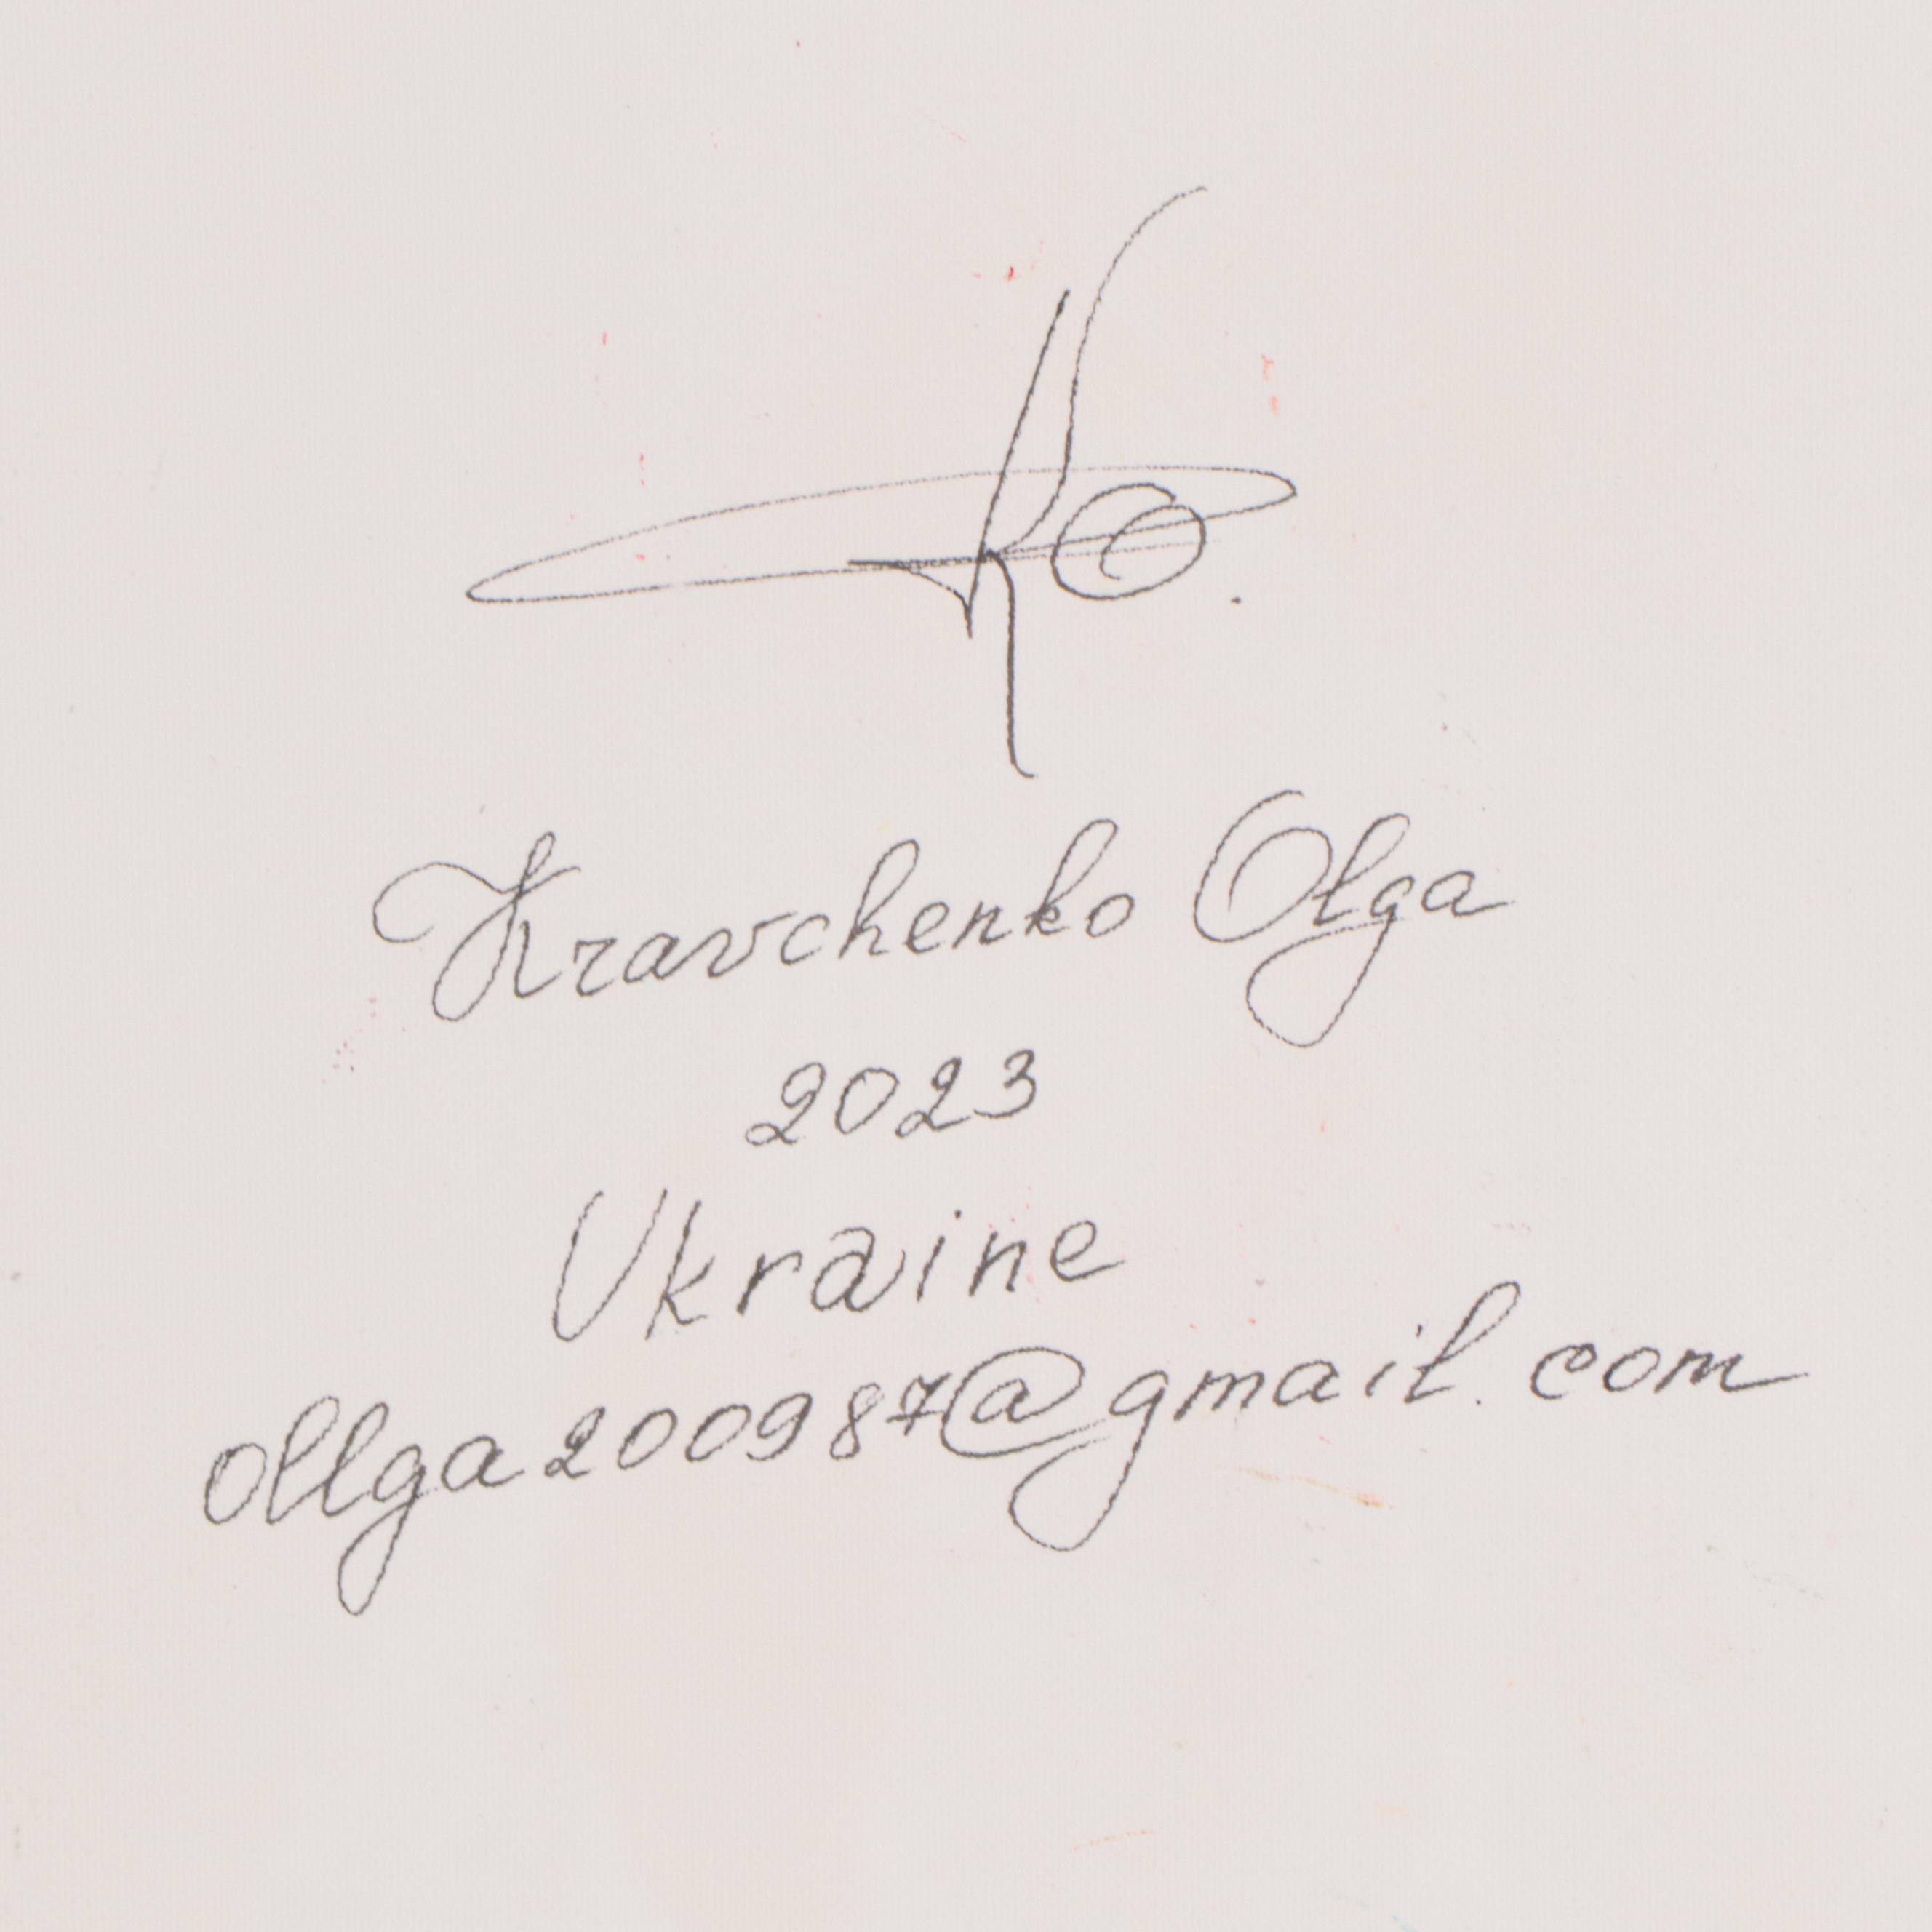 Kravchenko Olga
2023
Ukraine
ollga200987@gmail.com